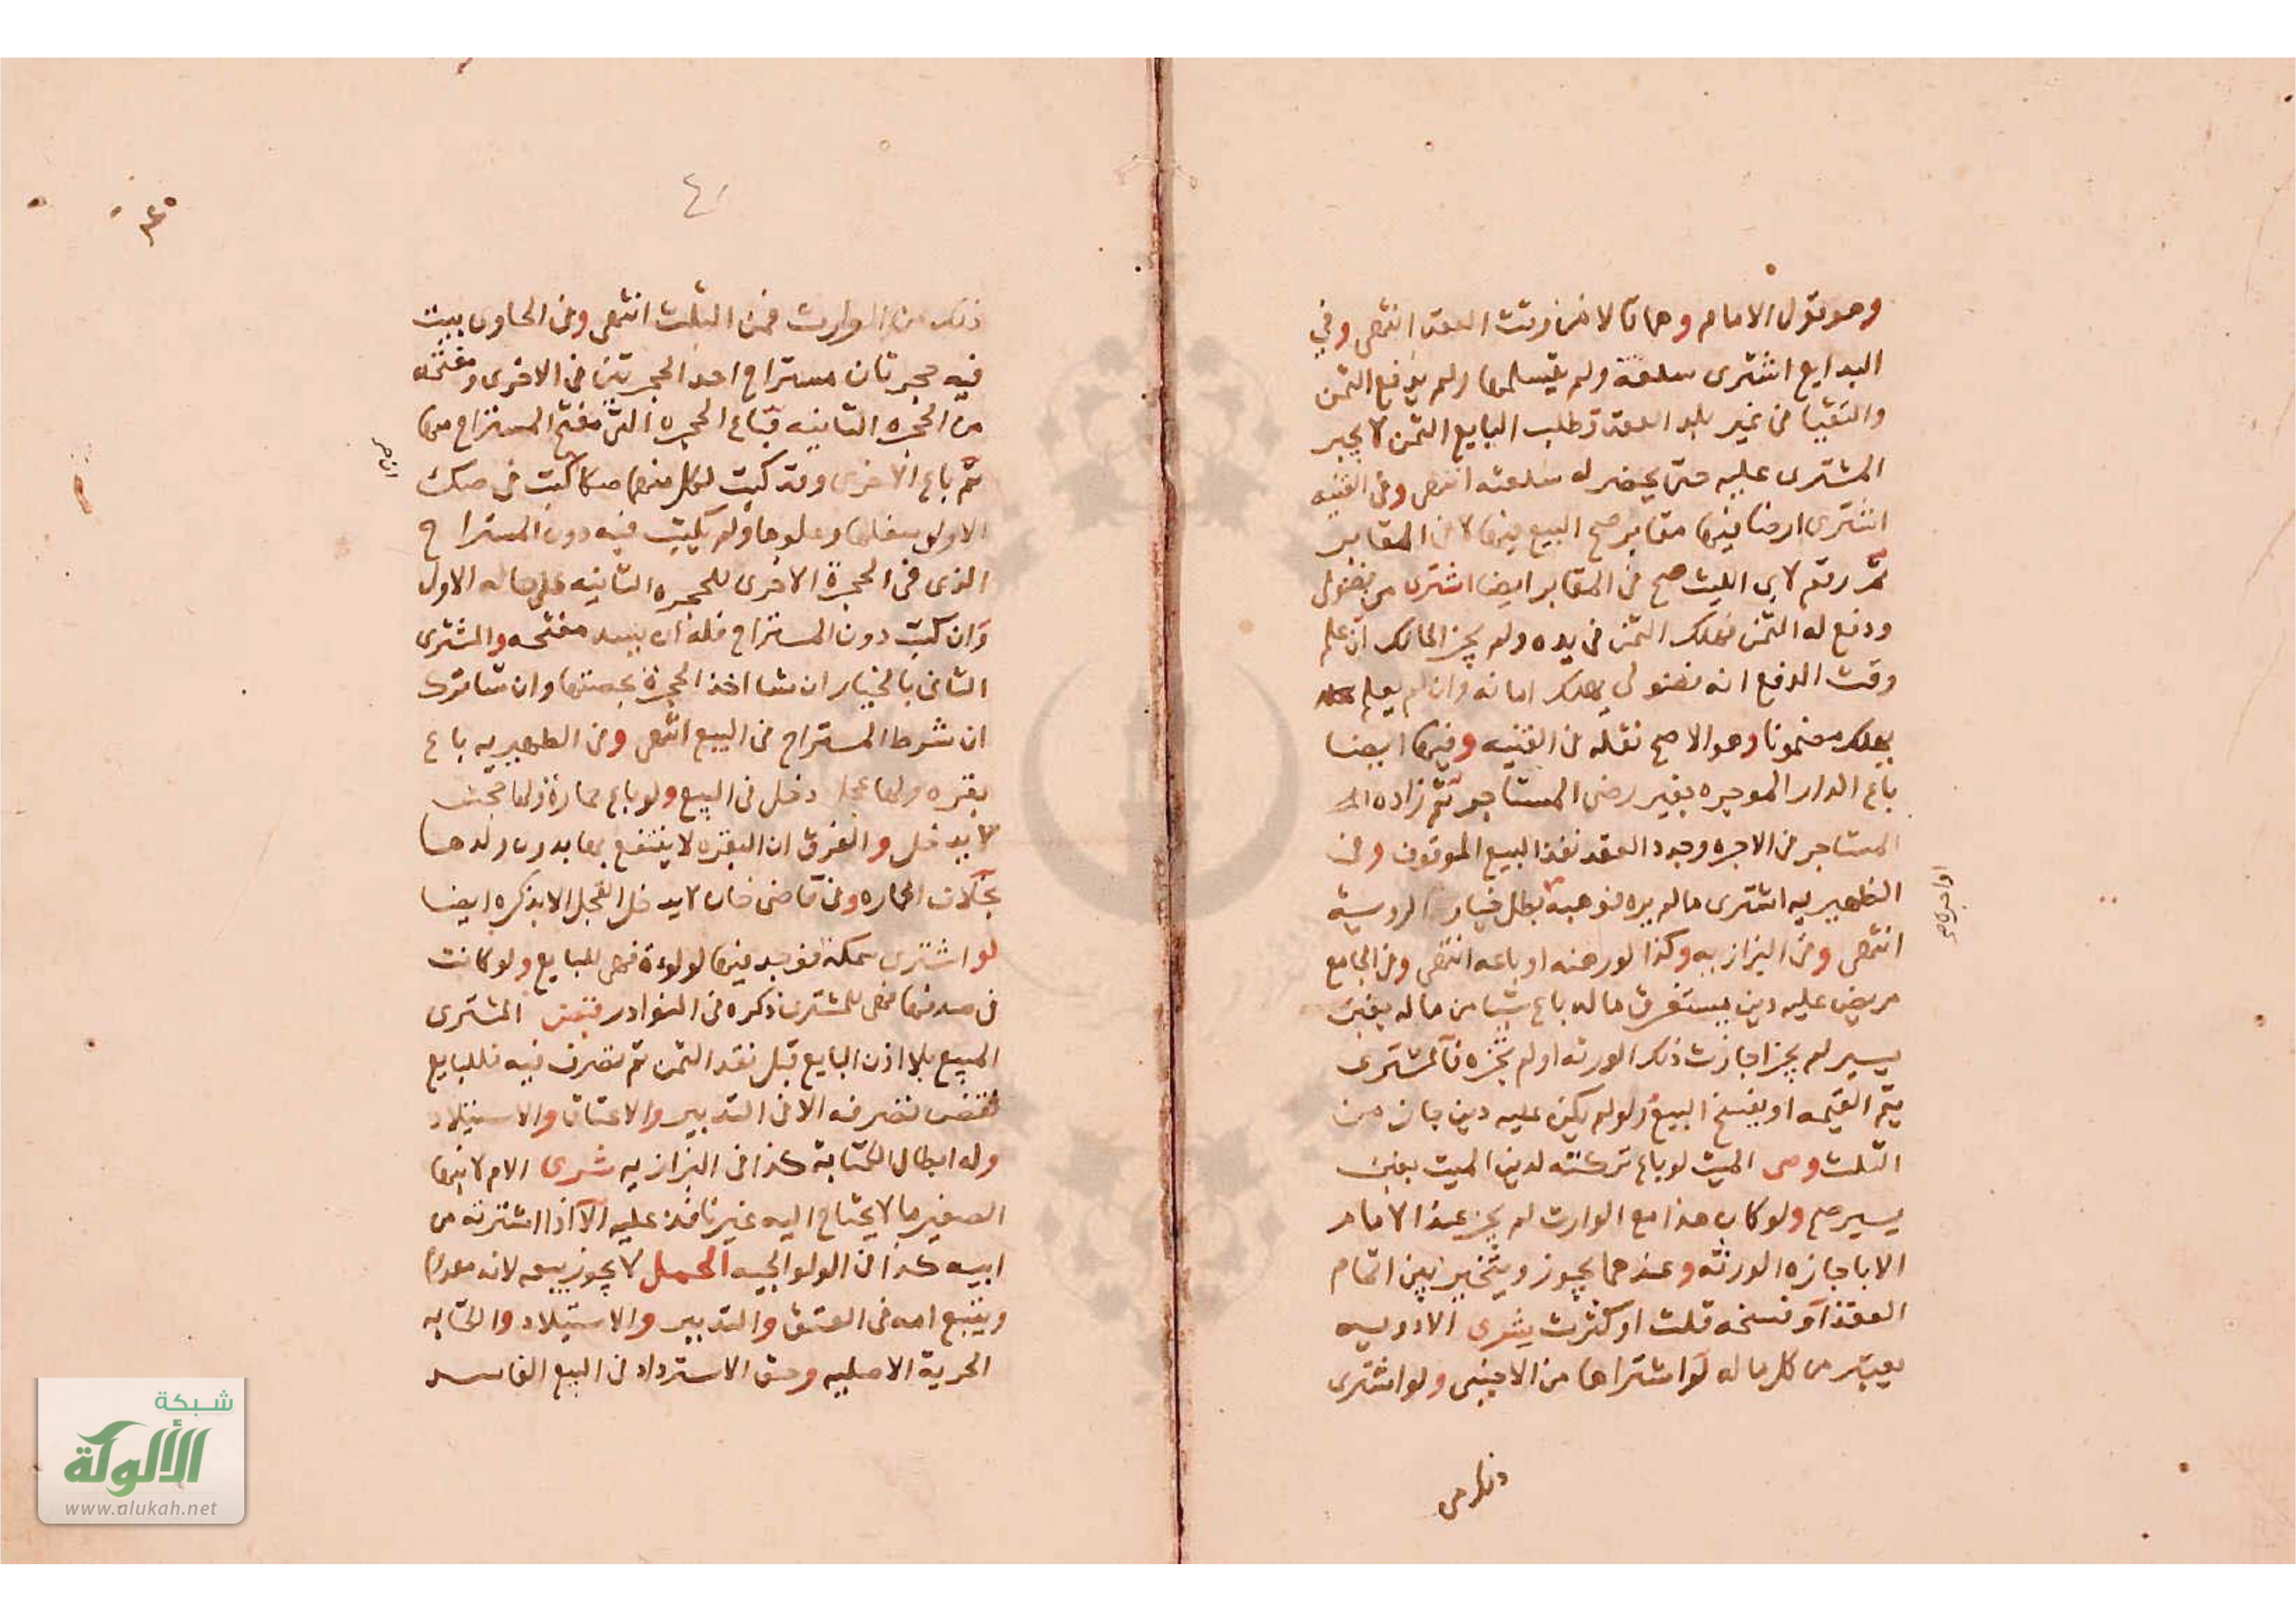 وهو قول الامام وهما قالا من وقت العقد انتهى وفي
البدايع اشترى سلعة ولم يتسلمها ولم يدفع الثمن
والتقيا في غير بلد العقد وطلب البايع الثمن لا يجبر
المشترى عليه حتى يحضر له سلعته انتهى وفى القنيه
اشترى ارضا فيها مقابر صح البيع فيها لا فى المقابر
ثم رقم لابى الليث صح فى المقابر ايضا اشترى من فضولى
ودفع له الثمن فهلك الثمن فى يده ولم يجز المالك ان علم
وقت الدفع انه فضولى يهلك امانه وان لم يعلم
يهلك مضمونا وهو الاصح نقله فى القنيه وفيها ايضا
باع الدار الموجره بغير رضى المستاجر ثم زاده
المستاجر فى الاجره وجدد العقد نفذ البيع الموقوف وفى
الظهيريه اشترى مالم يره فوهبه بطل خيار الروية
انتهى وفى البزازيه وكذا لو رهنه او باعه انتهى وفى الجامع
مريض عليه دين يستغرق ماله باع شيا من ماله بغبن
يسير لم يجز اجازت ذلك الورثه او لم تجزه فالمشترى
يتم القيمه او يفسخ البيع ولو لم يكن عليه دين جاز من
الثلث وصى الميت لو باع تركته لدين الميت بغبن
يسير صح ولو كان هذا مع الوارث لم يجز عند الامام
الا باجازه الورثه وعندهما يجوز ويتخير بين اتمام
العقد او فسخه قلت او كثرت يشرى الادويه
يعتبر من كل ماله لو اشتراها من الاجنبى ولو اشترى
ذلك من
٤٠
ذلك من الوارث فمن الثلث انتهى وفى الحاوى بيت
فيه حجرتان مستراح احد الحجرتين فى الاخرى ومفتحه
من الحجره الثانيه فباع الحجره التى مفتح المستراح منها
ثم باع الاخرى وقد كتب لكل منهما صكا كتب فى صك
الاولى بسفلها وعلوها ولم يكتب فيه دون المستراح
الذى فى الحجرة الاخرى للحجره الثانيه على حاله الاول
وان كتب دون المستراح فله ان يسد مفتحه والمشترى
الثانى بالخيار ان شا اخذ الحجرة بحصتها وان شا ترك
ان شرط المستراح فى البيع انتهى وفى الظهيريه باع
بقره ولها عجل دخل فى البيع ولو باع حمارة ولها جحش
لا يدخل والفرق ان البقره لا ينتفع بها بدون ولدها
بخلاف الحماره وفى قاضى خان لا يدخل العجل الا بذكره ايضا
لو اشترى سمكة فوجد فيها لولوة فهى للبايع ولو كانت
فى صدفها فهى للمشترى ذكره فى النوادر قبض المشترى
المبيع بلا اذن البايع قبل نقد الثمن ثم تصرف فيه فللبايع
نقض تصرفه الا فى التدبير والاعتاق والاستيلاد
وله ابطال الكتابة كذا فى البزازيه شرى الام لابنها
الصغير ما لا يحتاج اليه غير نافذ عليه الا اذا اشترته من
ابيه كذا فى الولوالجيه الحمل لا يجوز بيعه لانه معدوم
ويتبع امه فى العتق والتدبير والاستيلاد والكتابه
الحرية الاصليه وحق الاسترداد فى البيع الفاسد
شبكة
الألوكة
www.alukah.net